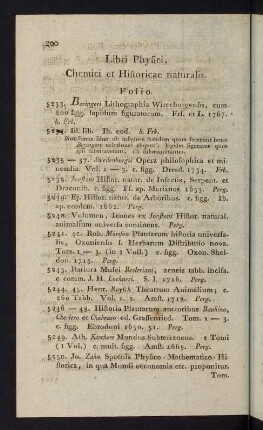 200
Libri Physici,
Chemici et Historicae naturalis.
Folio.
5233. Beringers Lithographia Wirceburgensis, cum
200 figg. lapidum figuratorum. Frf. et L. 1767.
h. Frb.
5234. Id. lib. Ib. eod. h. Frb.
5235 — 37. Swedenborgii Opera philosophica et mi-
neralia. Vol. 1 — 3. c. figg. Dresd. 1734. Frb.
5238. Jonstoni Histor. natur. de Insectis, Serpent. et
Draconib. c. figg. Ff. ap. Merianos 1653. Perg.
5239. Ej. Histor. natur. de Arboribus. c. figg. Ib.
ap. eosdem. 1662. Perg.
5240. Volumen, Icones ex Jonstoni Histor. natural.
animalium universis continens. Perg.
5241. 42. Rob. Morison Plantarum historia universa-
lis, Oxoniensis s. Herbarum Distributio nova.
Tom. 1 — 3. (in 1 Vol.) c. figg. Oxon. Shel-
don. 1715. Perg.
5243. Rariora Musei Besleriani, aeneis tabb. incisa.
c. comm. J. H. Lochneri. S. l. 1716. Perg.
5244. 45. Henr. Ruysch Theatrum Animalium; c.
260 Tabb. Vol. 1. 2. Amst. 1718. Perg.
5246 — 48. Historia Plantarum auctoribus Bauhino,
Cherlero et Chabraeo ed. Graffenried. Tom. 1 — 3.
c. figg. Ebroduni 1650. 51. Perg.
5249. Ath. Kircheri Mundus Subterraneus. 2 Tomi
(1 Vol.) c. mult. figg. Amst. 1665. Perg.
5250. Jo. Zahn Specula Physico-Mathematico-Hi-
storica, in qua Mundi oeconomia etc. proponitur.
Tom.